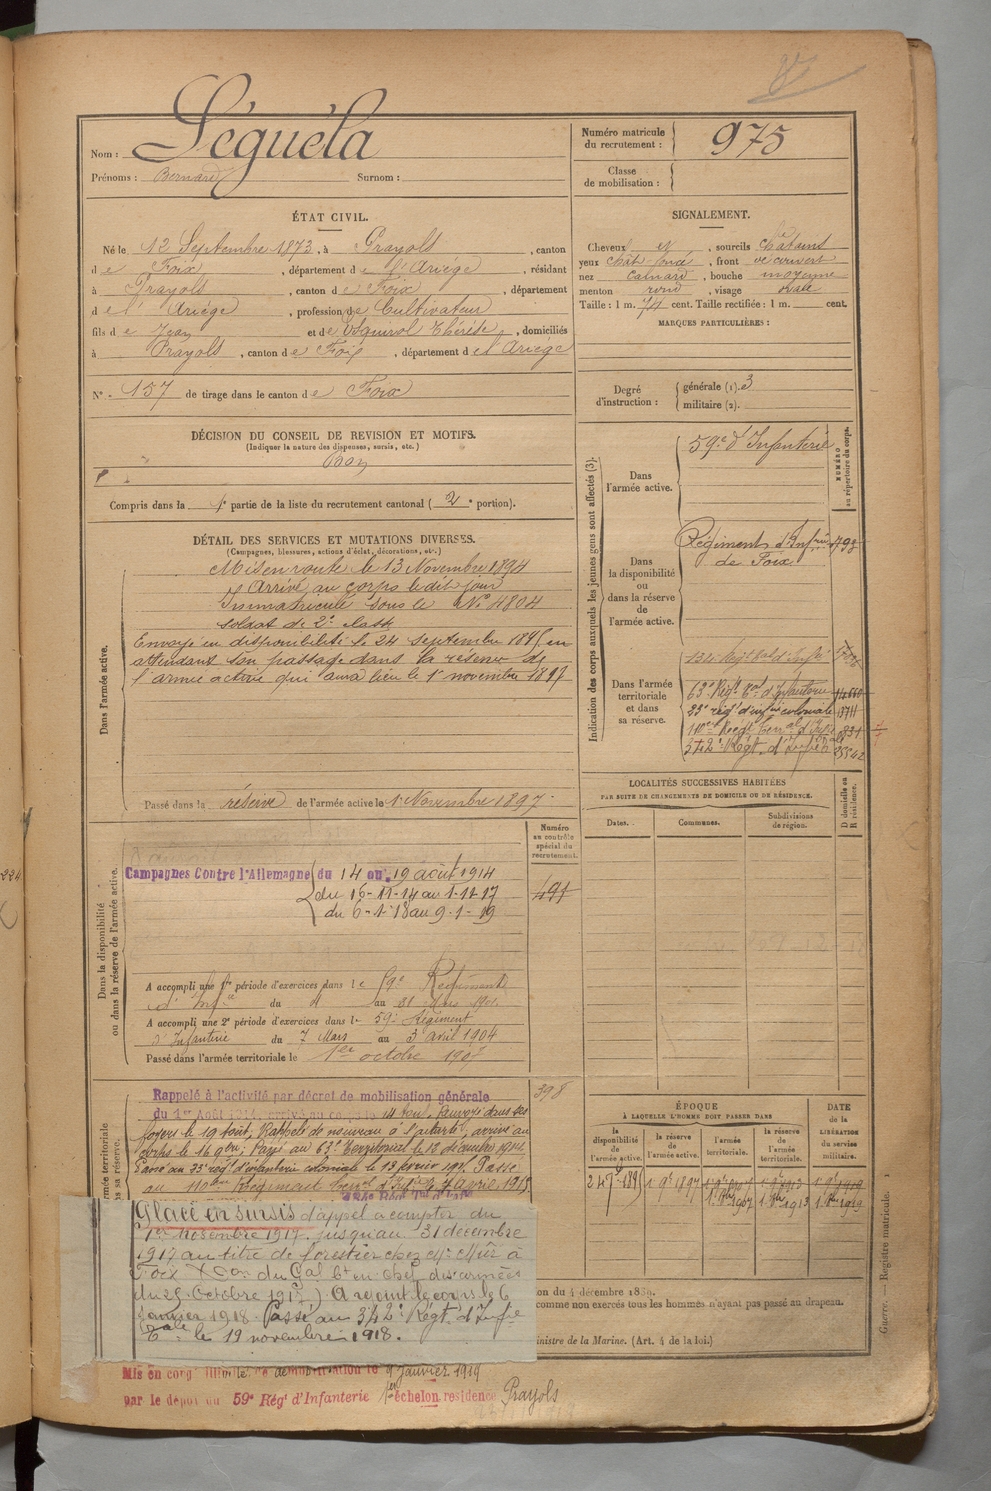 Séguéla
Nom :
Prénoms : Bernard Surnom :
Numéro matricule
du recrutement : 975
Classe
de mobilisation :
ÉTAT CIVIL.
Né le 12 Septembre 1873, à Prayols, canton
de Foix, département de l'Ariége, résidant
à Prayols, canton de Foix, département
de l'Ariége, profession de Cultivateur
fils de Jean et de Esquirol Thérèse, domiciliés
à Prayols, canton de Foix, département de l'Ariége
N° 157 de tirage dans le canton de Foix
SIGNALEMENT.
Cheveux et, sourcils châtains
yeux chât. foncé, front découvert
nez camard, bouche moyenne
menton rond, visage ovale
Taille : 1 m. 74 cent. Taille rectifiée : 1 m. cent.
MARQUES PARTICULIÈRES :
Degré
d'instruction :
générale (1). 3
militaire (2).
DÉCISION DU CONSEIL DE REVISION ET MOTIFS.
(Indiquer la nature des dispenses, sursis, etc.)
Bon
Compris dans la 1e partie de la liste du recrutement cantonal ( 2e portion).
DÉTAIL DES SERVICES ET MUTATIONS DIVERSES.
(Campagnes, blessures, actions d'éclat, décorations, etc.)
Dans l'armée active.
Mis en route le 13 Novembre 1894
Arrivé au corps le dit jour
Immatriculé sous le N° 4804
soldat de 2e classe
Envoyé en disponibilité le 24 septembre 1895 en
attendant son passage dans la réserve de
l'armée active qui aura lieu le 1er novembre 1897
Passé dans la réserve de l'armée active le 1 Novembre 1897.
Indication des corps auxquels les jeunes gens sont affectés (3).
NUMÉRO
au répertoire du corps.
Dans
l'armée active.
59e d'Infanterie
Dans
la disponibilité
ou
dans la réserve
de
l'armée active.
Régiment d'Infrie 793
de Foix
Dans l'armée
territoriale
et dans
sa réserve.
134 Régt Tal d'Infie
63e Régt Tal d'Infanterie
23e régt d'infie coloniale 13711
110e Regt Terral d'Infie 831
342e Régt. d'Infie 25542
LOCALITÉS SUCCESSIVES HABITÉES
PAR SUITE DE CHANGEMENTS DE DOMICILE OU DE RÉSIDENCE.
Dates. Communes. Subdivisions
de région.
D domicile ou
R résidence.
Numéro
au contrôle
spécial du
recrutement.
Dans la disponibilité
ou dans la réserve de l'armée active.
Campagnes Contre l'Allemagne du 14 au 19 août 1914
491
du 16-11-14 au 1-11-17
du 6-1-18 au 9-1-19
A accompli une 1re période d'exercices dans le 59e Régiment
d'Infie du 4 au 31 Mars 1901
A accompli une 2e période d'exercices dans le 59e Régiment
d'Infanterie du 7 Mars au 3 avril 1904
Passé dans l'armée territoriale le 1er octobre 1907
398
Rappelé à l'activité par décret de mobilisation générale
du 1er Août 1914, arrivé au corps le 14 août. Renvoyé dans ses
foyers le 19 août. Rappelé de nouveau à l'activité, arrivé au
corps le 16 9bre; Passé au 63e Territorial le 12 décembre 1914.
Passé au 23e régt d'infanterie coloniale le 13 février 191. Passé
au 110ème Régiment terral d'Infie le 7 Avril 1915
134e Régt Tal d'Infie
Placé en sursis d'appel à compter du
1er novembre 1917. jusqu'au 31 décembre
1917 au titre de forestier chez Mr Mûr à
Foix du Gal Ct en chef des armées
du 25 Octobre 1917) A rejoint le corps le 6
Janvier 1918. Passé au 342e Régt d'Infie
le 19 novembre 1918.
ÉPOQUE
À LAQUELLE L'HOMME DOIT PASSER DANS
DATE
de la
LIBÉRATION
du service
militaire.
la
disponibilité
de
l'armée active.
la réserve
de
l'armée active.
l'armée
territoriale.
la
réserve de
l'armée
territoriale.
24 7bre 1895 1 9e 1897 1907 1913 1919
1 8bre 1907 1 8bre 1913 1 8bre 1919
on du 4 décembre 1889.
comme non exercés tous les hommes n'ayant pas passé au drapeau.
inistre de la Marine. (Art. 4 de la loi.)
Guerre. — Registre matricule. 1
Mis en congé illimité de démobilisation le 9 Janvier 1919
par le dépôt du 59e Régt d'Infanterie 1er échelon résidence Prayols